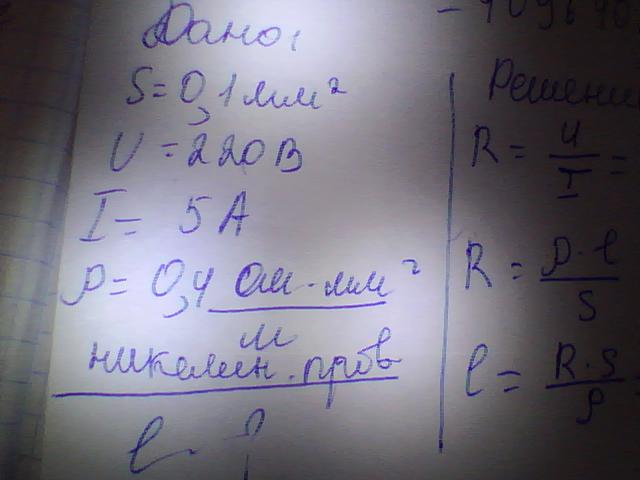 Дано:
S = 0,1 мм²
U = 220 В
I = 5 А
ρ = 0,4 Ом·мм²
м
никелин. пров
l - ?
Решени
R = U/I =
R = ρ·l/S
l = R·S/ρ